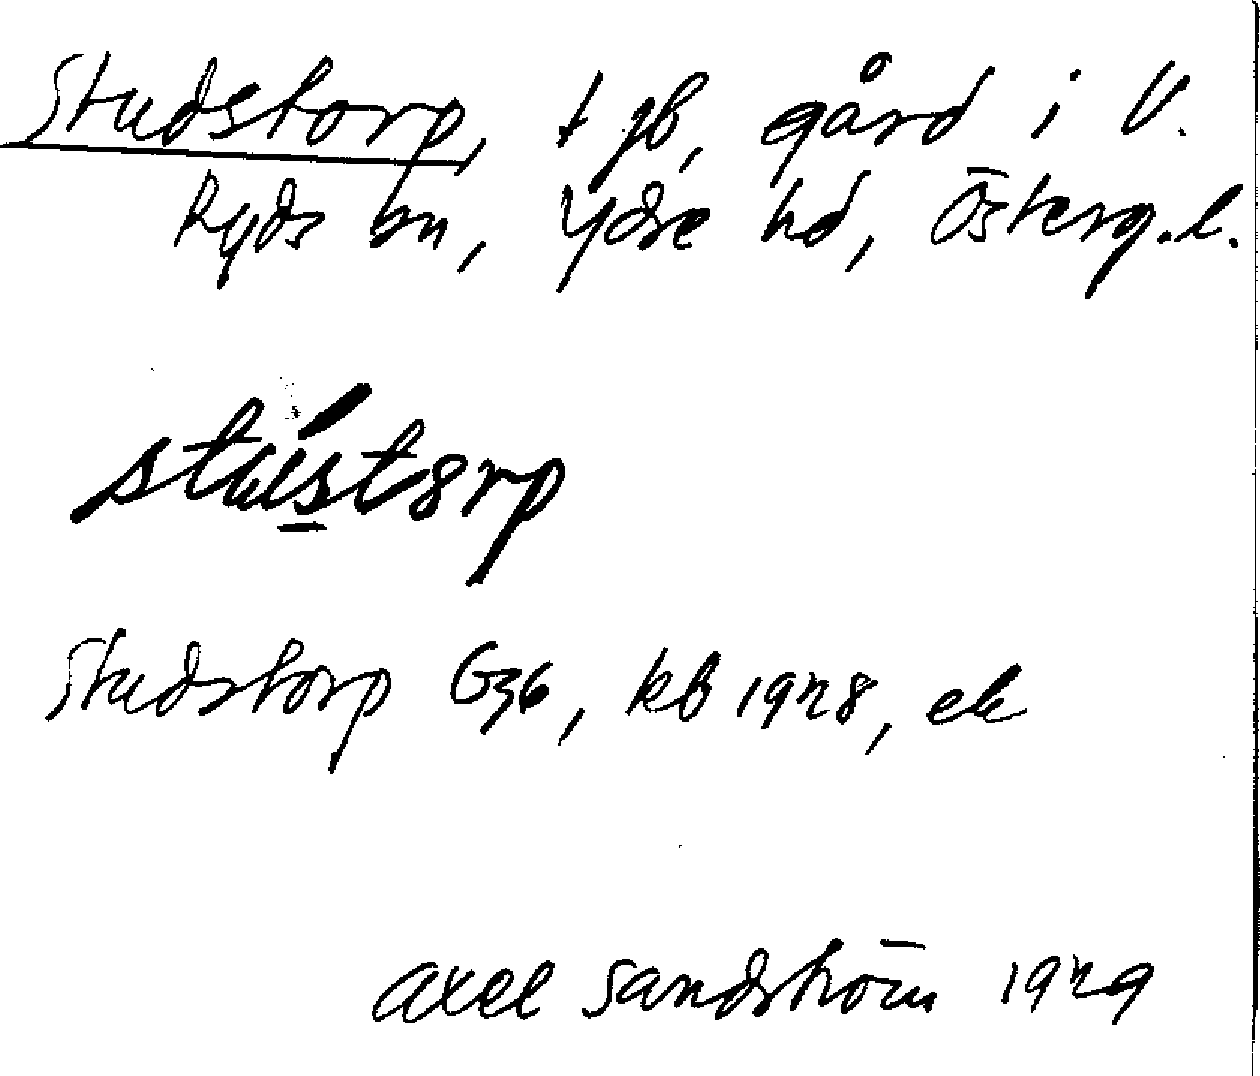 Studstorp, t jb, gård i V.
Ryds sn, Ydre hd, Österg.l.
stústorp
Studstorp G36, kb 1928, ek
Axel Sandström 1929